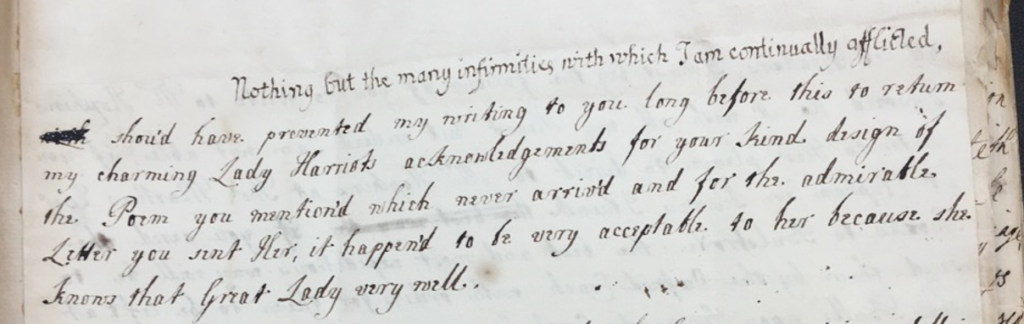 Nothing but the many infirmities with which I am continually afflicted,
shou'd have prevented my writing to you long before this to return
my charming Lady Harriots acknowledgements for your kind design of
the Poem you mention'd which never arriv'd and for the admirable
Letter you sent Her, it happen'd to be very acceptable to her because she
knows that Great Lady very well.